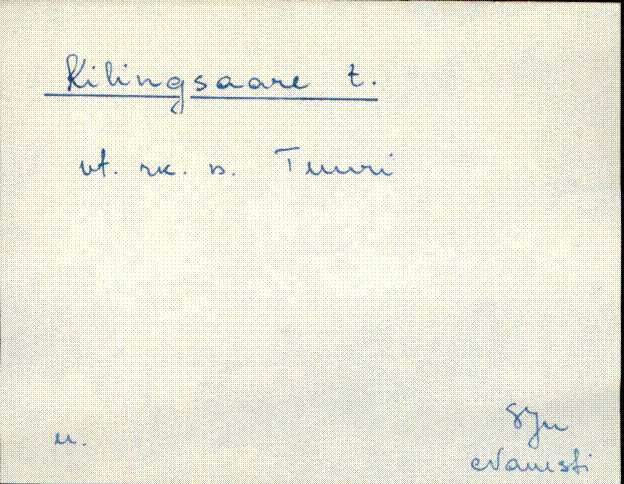 Kilingsaare t.
vt. rk. n. Tuuri
u. Jyn
evansti